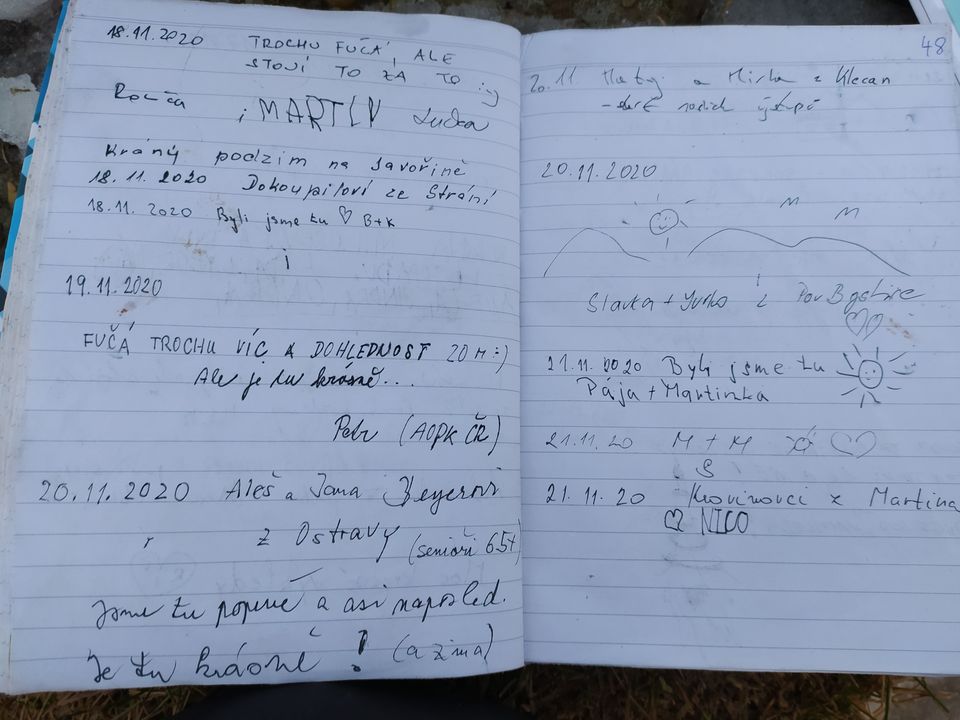 18.11.2020 TROCHU FUČÁ, ALE
STOJÍ TO ZA TO :)
i MARTIN
Krásný podzim na Javořině
18.11.2020 Dokoupilovi ze Strání
18.11.2020 Byli jsme tu ♡ B+K
19.11.2020
FUČÁ TROCHU VÍC A DOHLEDNOST 20 M :)
Ale je tu krásně...
Petr (AOPK ČR)
20.11.2020 Aleš a Jana
z Ostravy (senioři 65+)
Jsme tu poprvé a asi naposled.
Je tu krásně! (a zima)
48
20.11 a Mirka z Klecan
20.11.2020
Slavka + Jurko z Pov Bystrice
21.11.2020 Byli jsme tu
Pája + Martinka
21.11.20 M + M
S
21.11.20 z Martina
♡ NICO